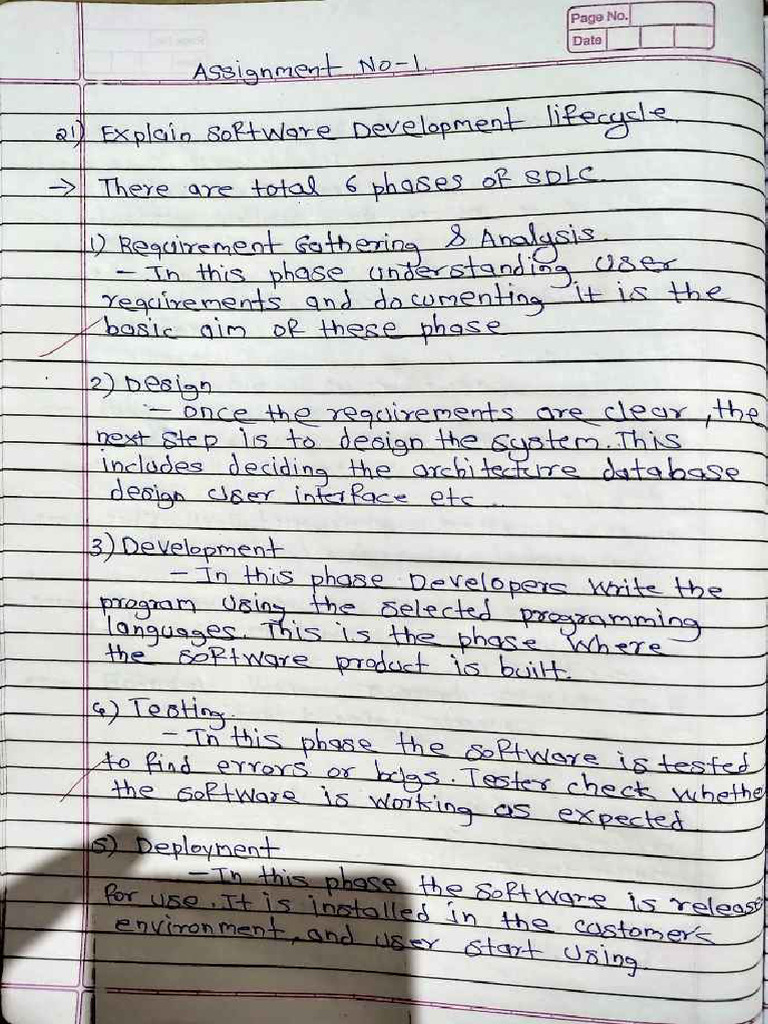 Page No.
Date
Assignment No-1.
Q1) Explain Software Development lifecycle.
→ There are total 6 phases of SDLC.
1) Requirement Gathering & Analysis.
- In this phase understanding user
requirements and documenting it is the
basic aim of these phase
2) Design
- Once the requirements are clear, the
next step is to design the system. This
includes deciding the architecture database
design user interface etc..
3) Development
- In this phase Developers write the
program using the selected programming
languages. This is the phase where
the software product is built.
4) Testing.
- In this phase the software is tested
to find errors or bugs. Tester check whethe
the software is working as expected
5) Deployment
- In this phase the software is release
for use. It is installed in the customers
environment, and user start using.